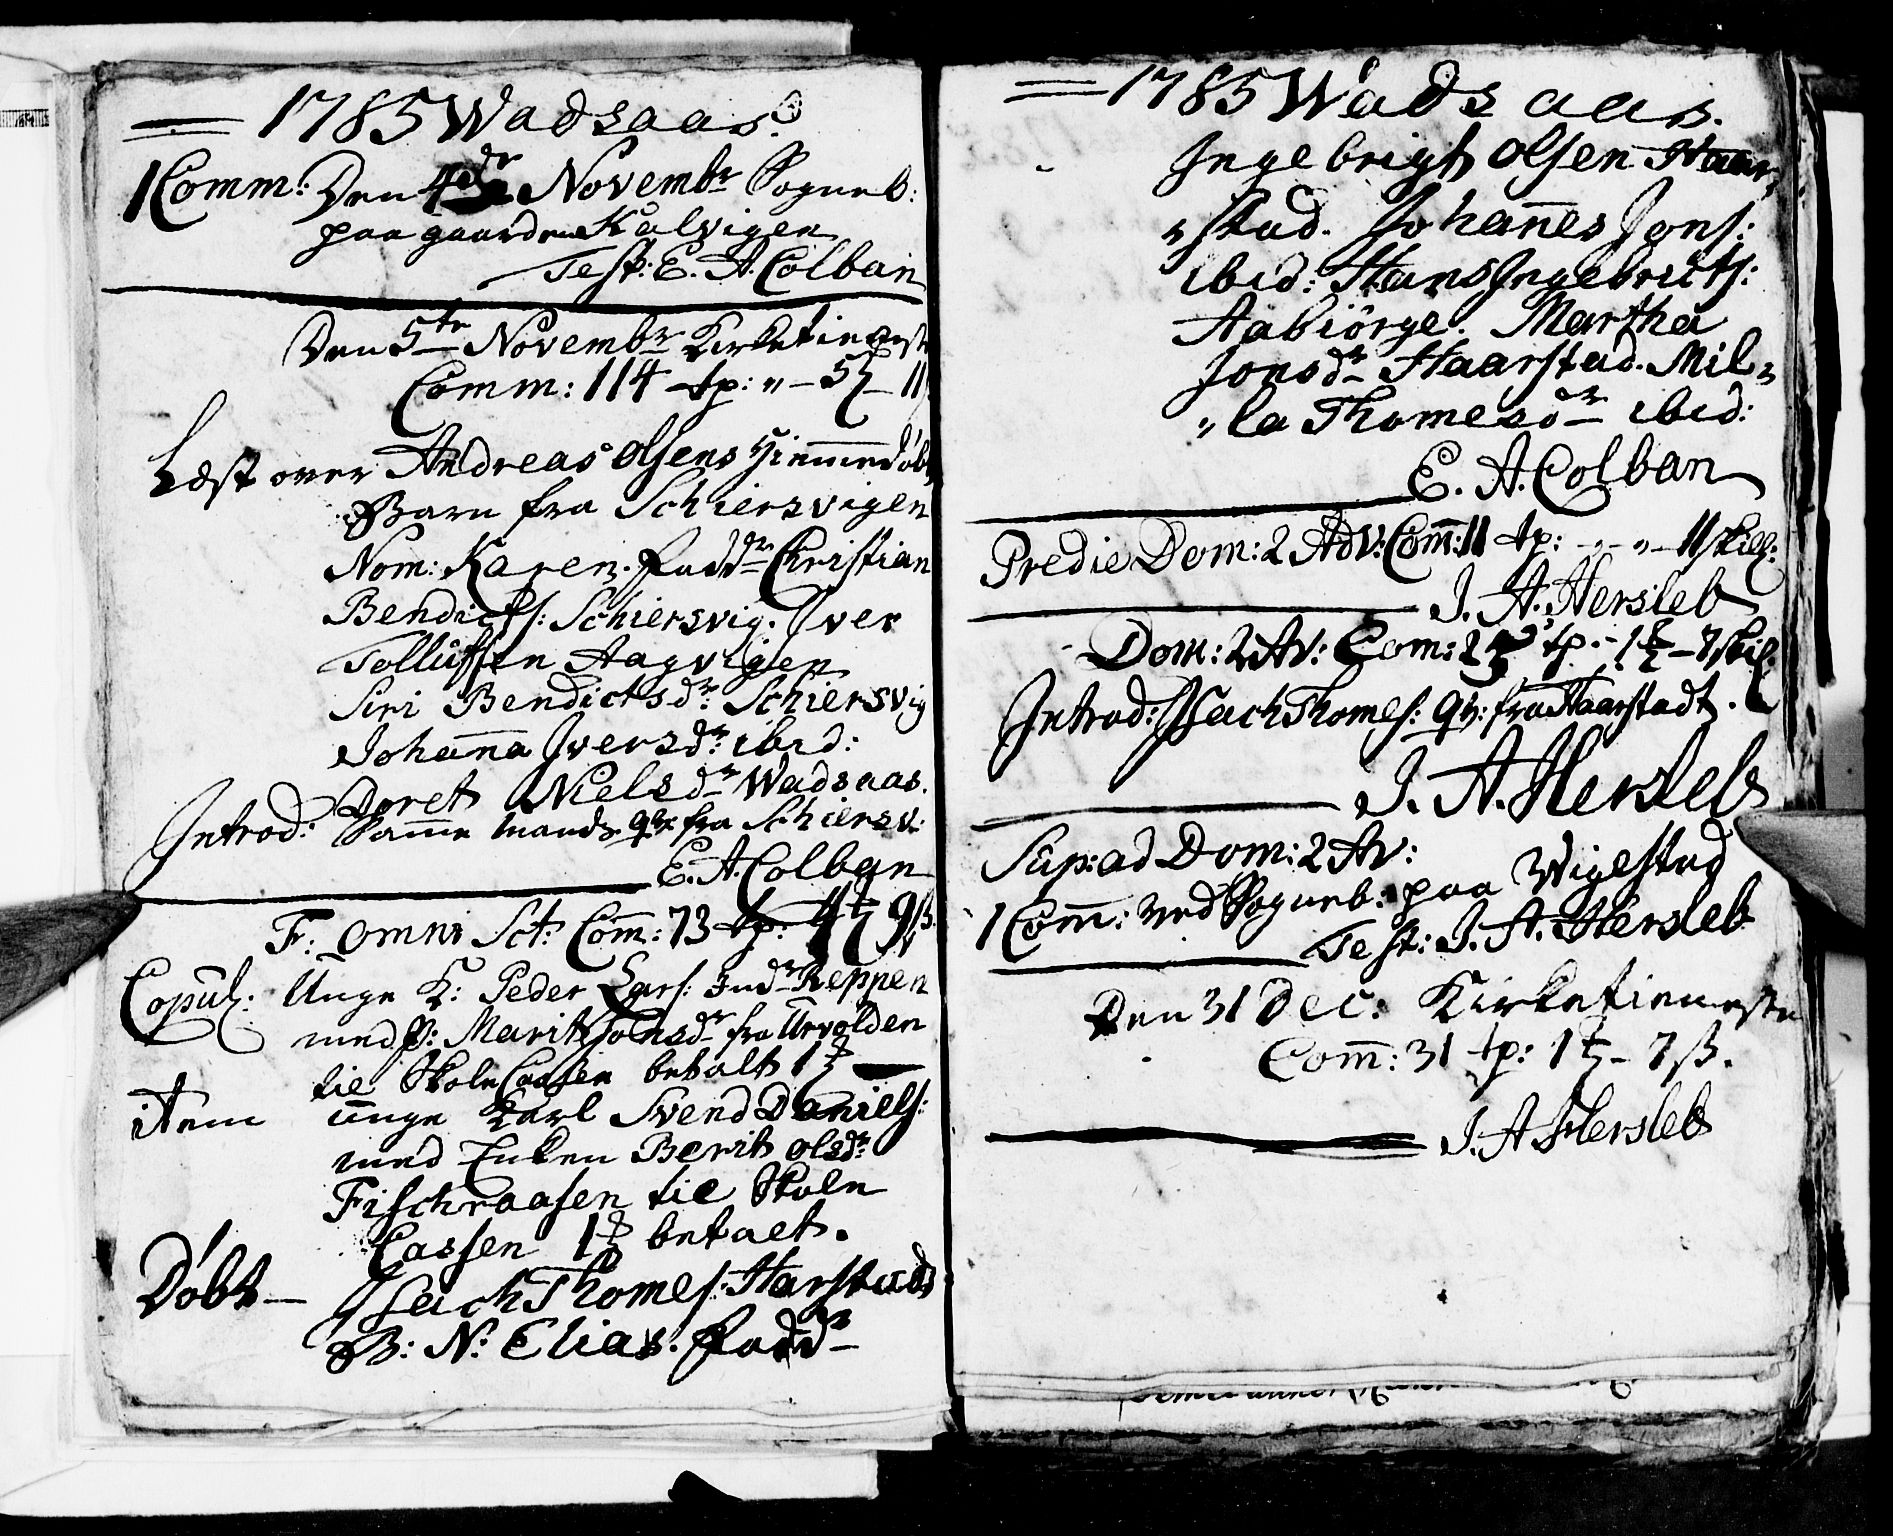 1785 Wadsaas.
1 Comm: Den 4de Novembr Sogneb:
paa gaarden Kalvigen
Test: E. A. Colban
Den 5te Novembr Kirketieneste
Comm: 114 tp: „ – 5 – 11
Læst over Andreas Olsens Hiemmedøbt
Barn fra Schiersvigen
Nom: Karen. Faddr Christian
Bendicts: Schiersvig. Iver
Tollufsen Aagvigen
Siri Bendictsdr Schiersvig
Johanna Iversdr: ibid:
Doret Nielsdr Wadsaas.
Introd: Samme Mands qv: fra Schiersv:
E. A. Colban
F: Omni Sct: Comm: 73 tp: 4 9ß
Copul: Unge K: Peder Lars: Indr Reppen
med P: Marit Johnsdr fra Urvolden
til Skole Cassen betalt 1
item unge Karl Svend Daniels:
med Enken Berit Olsdr
Fischraasen til Skole
Cassen 1 betalt.
Døbt – Isach Thomes: Harstads
B: N: Elias. Faddr
1785 Wadsaas.
Ingebrigt Olsen Haar„
„stad. Johannes Jons:
ibid: Hans Ingebricts:
Aabiörge. Martha
Jonsdr Haarstad. Mil„
„la Thomesdr ibid:
E. A. Colban
Predie Dom: 2 Adv: Comm: 11 tp: – „ – 11 skill:
J. A. Hersleb
Dom: 2 Av: Com: 2 tp: – 1 – 7 skil:
Introd: Isach Thomes: qv: fra Haarstadt.
J. A. Hersleb
Sup: ad Dom: 2 Av:
1 Comm: ved Sogneb: paa Wigestad
Test: J. A. Hersleb
Den 31 Dec: Kirketieneste
Comm: 31 tp: 1 – 7ß.
J. A. Hersleb